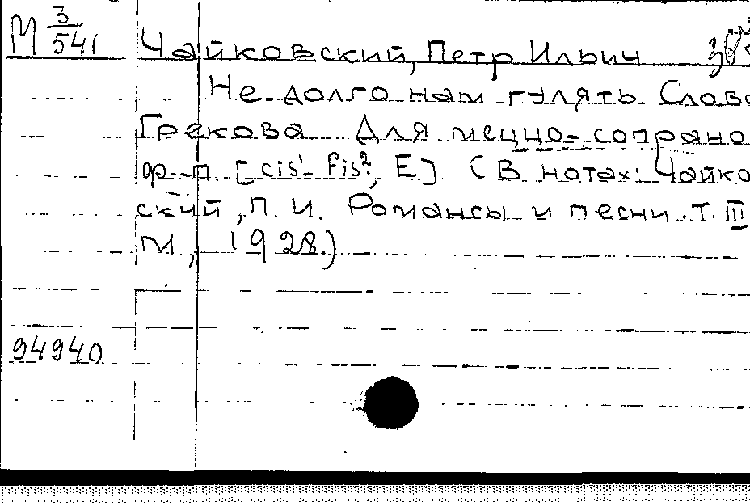 М 3/541
Чайковский, Петр Ильич
Не долго нам гулять. Слова
Грекова. Для меццо-сопрано
ф-п. [cis¹-fis², E] (В нотах: Чайко
ский, П. И. Романсы и песни. Т. III
М., 1928.)
94940